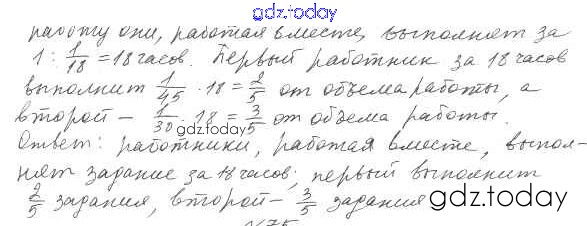 gdz.today
работу они, работая вместе, выполнят за
1 : 1/18 = 18 часов. Первый работник за 18 часов
выполнит 1/45 · 18 = 2/5 от объема работы, а
второй – 1/30 · 18 = 3/5 от объема работы.
gdz.today
Ответ: работники, работая вместе, выпол-
нят задание за 18 часов; первый выполнит
2/5 задания, второй – 3/5 задания
gdz.today
№75